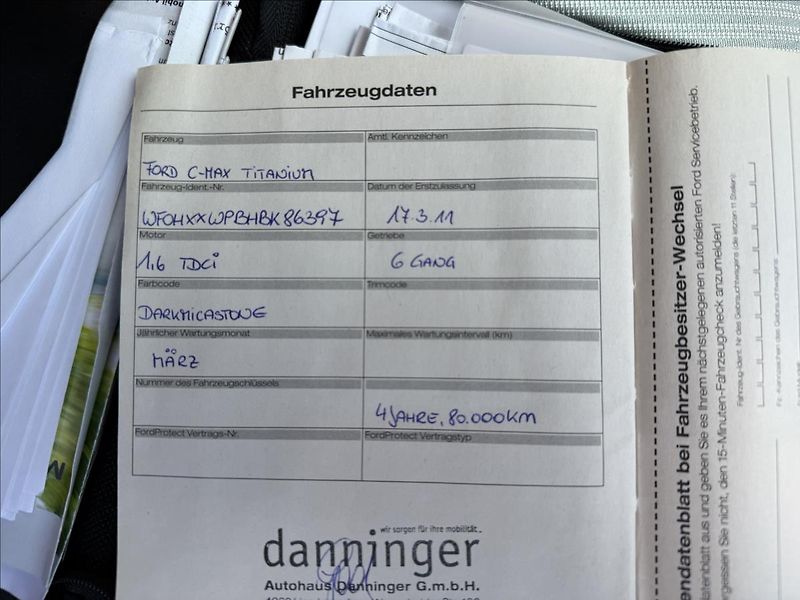 Fahrzeugdaten
Fahrzeug
Amtl. Kennzeichen
FORD C-MAX TITANIUM
Fahrzeug-Ident.-Nr.
Datum der Erstzulassung
WF0HXXWPBHBK86397
17.3.11
Motor
Getriebe
1,6 TDCi
6 GANG
Farbcode
Trimcode
DARKMICASTONE
Jährlicher Wartungsmonat
Maximales Wartungsintervall (km)
MÄRZ
Nummer des Fahrzeugschlüssels
4 JAHRE, 80.000KM
FordProtect Vertrags-Nr.
FordProtect Vertragstyp
wir sorgen für ihre mobilität
danninger
Autohaus Danninger G.m.b.H.
endatenblatt bei Fahrzeugbesitzer-Wechsel
latenblatt aus und geben Sie es Ihrem nächstgelegenen autorisierten Ford Servicebetrieb.
ergessen Sie nicht, den 15-Minuten-Fahrzeugcheck anzumelden!
Fahrzeug-Ident. Nr des Gebrauchtwagens (die letzten 11 Stellen):
Kennzeichen des Gebrauchtwagens